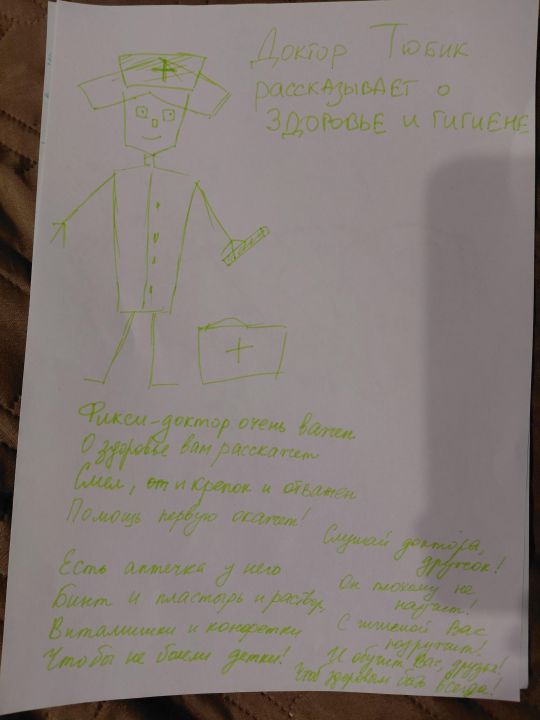 Доктор Тюбик
рассказывает о
ЗДОРОВЬЕ и ГИГИЕНЕ
Фикси-доктор очень важен
О здоровье вам расскажет
Смел, он и крепок и отважен
Помощь первую окажет!
Есть аптечка у него
Бинт и пластырь и раствор,
Витаминки и конфетки
Чтобы не болели детки!
Слушай доктора,
дружок!
Он плохому не
научит!
С гигиеной Вас
подружит!
И обучит Вас, друзья!
Чтоб здоровым быть всегда!